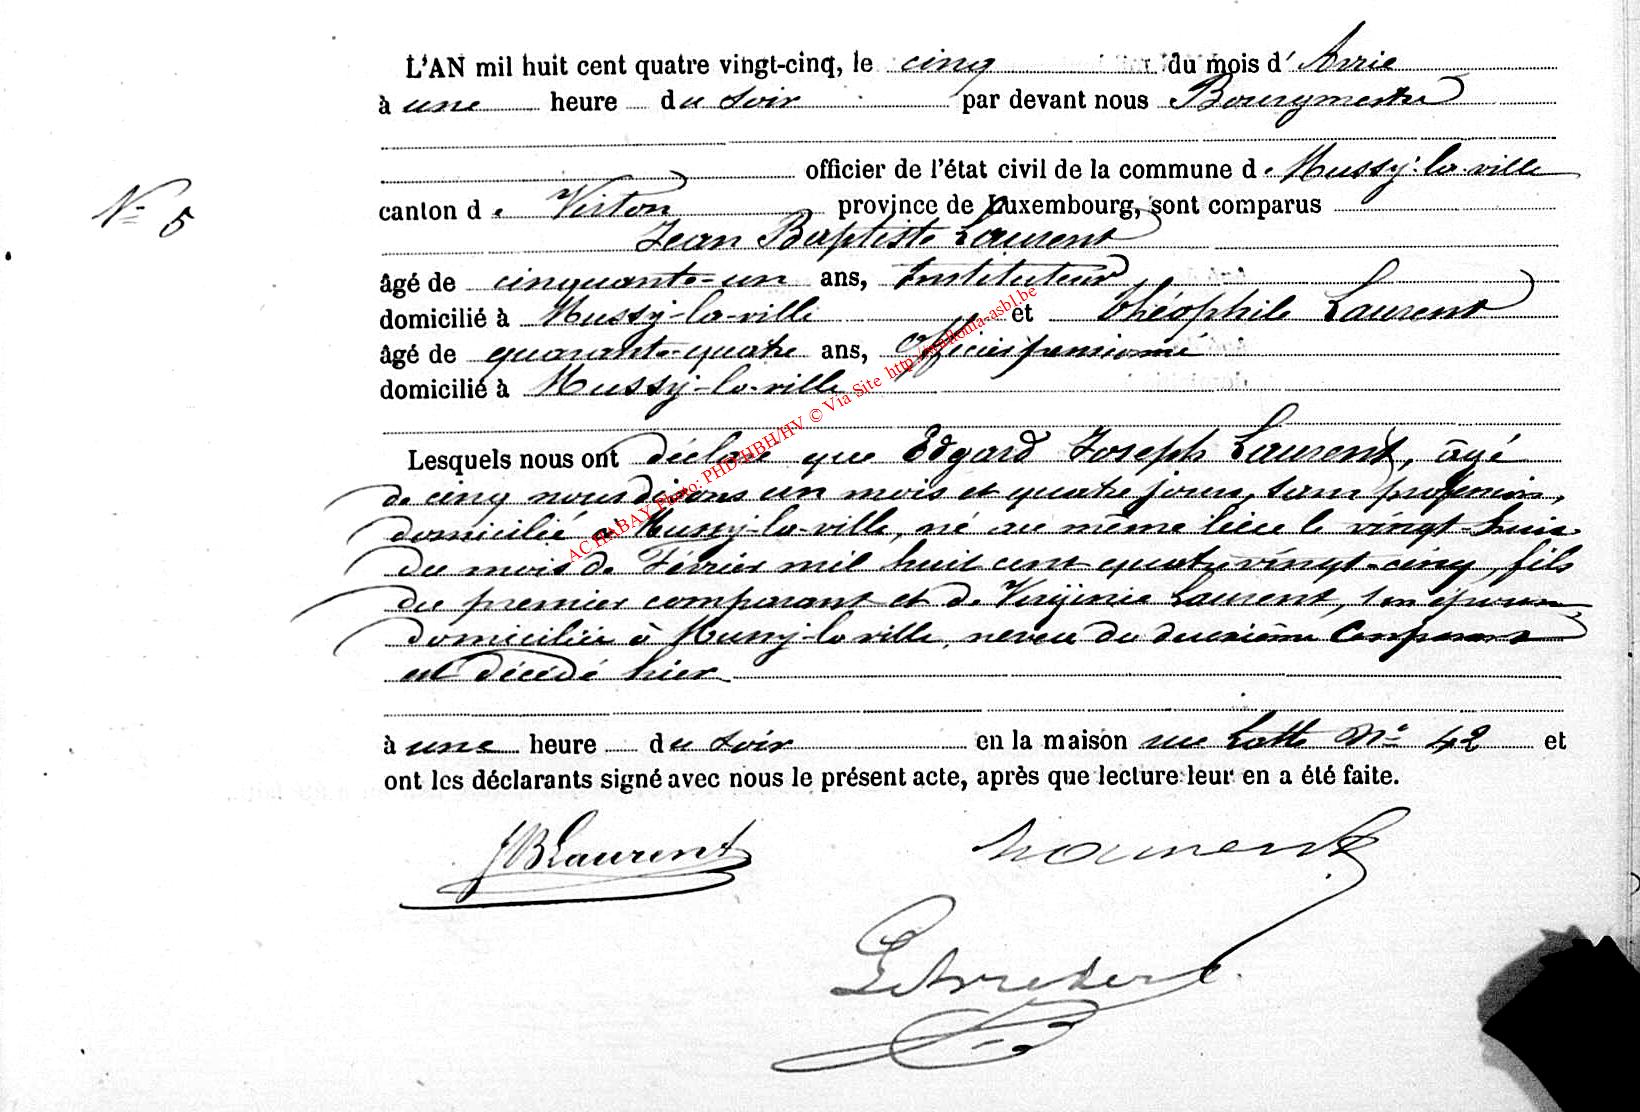 L'AN mil huit cent quatre vingt-cinq, le cinq du mois d'Avril
à une heure du soir par devant nous Bourgmestre
officier de l'état civil de la commune de Mussy-la-ville
N° 5
canton de Virton province de Luxembourg, sont comparus
Jean Baptiste Laurent
âgé de cinquante-un ans, Instituteur
domicilié à Mussy-la-ville et Théophile Laurent
âgé de quarante-quatre ans, Officier pensionné
domicilié à Mussy-la-ville
Lesquels nous ont déclaré que Edgard Joseph Laurent, âgé
de cinq nous disons un mois et quatre jours, sans profession,
domicilié à Mussy-la-ville, né au même lieu le vingt-huit
du mois de Février mil huit cent quatre vingt-cinq, fils
du premier comparant et de Virginie Laurent, son épouse,
domiciliée à Mussy-la-ville, neveu du deuxième Comparant
est décédé hier
à une heure du soir en la maison rue N° 42 et
ont les déclarants signé avec nous le présent acte, après que lecture leur en a été faite.
JBLaurent Laurent
AC HABAY Photo: PHD/HBH/HV © Via Site http://wallonia-asbl.be